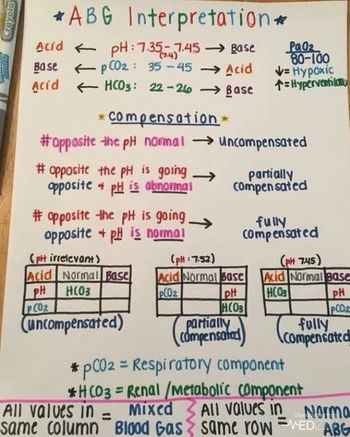 Crayola
* ABG Interpretation *
Acid ← pH: 7.35-7.45 → Base
(7.4)
Base ← pCO2: 35 - 45 → Acid
Acid ← HCO3: 22-26 → Base
PaO2
80-100
↓= Hypoxic
↑= Hyperventilation
* Compensation *
#opposite the pH normal → uncompensated
# opposite the pH is going → partially
opposite + pH is abnormal compensated
# opposite the pH is going → fully
opposite + pH is normal compensated
(pH irrelevant)
Acid Normal Base
pH HCO3
pCO2
(uncompensated)
(pH: 7.52)
Acid Normal Base
pCO2 pH
HCO3
(partially
compensated)
(pH 7.45)
Acid Normal Base
HCO3 pH
pCO2
(fully
compensated)
* pCO2 = Respiratory component
* HCO3 = Renal/Metabolic component
All values in = Mixed
same column Blood Gas
All values in = Norma
same row ABG